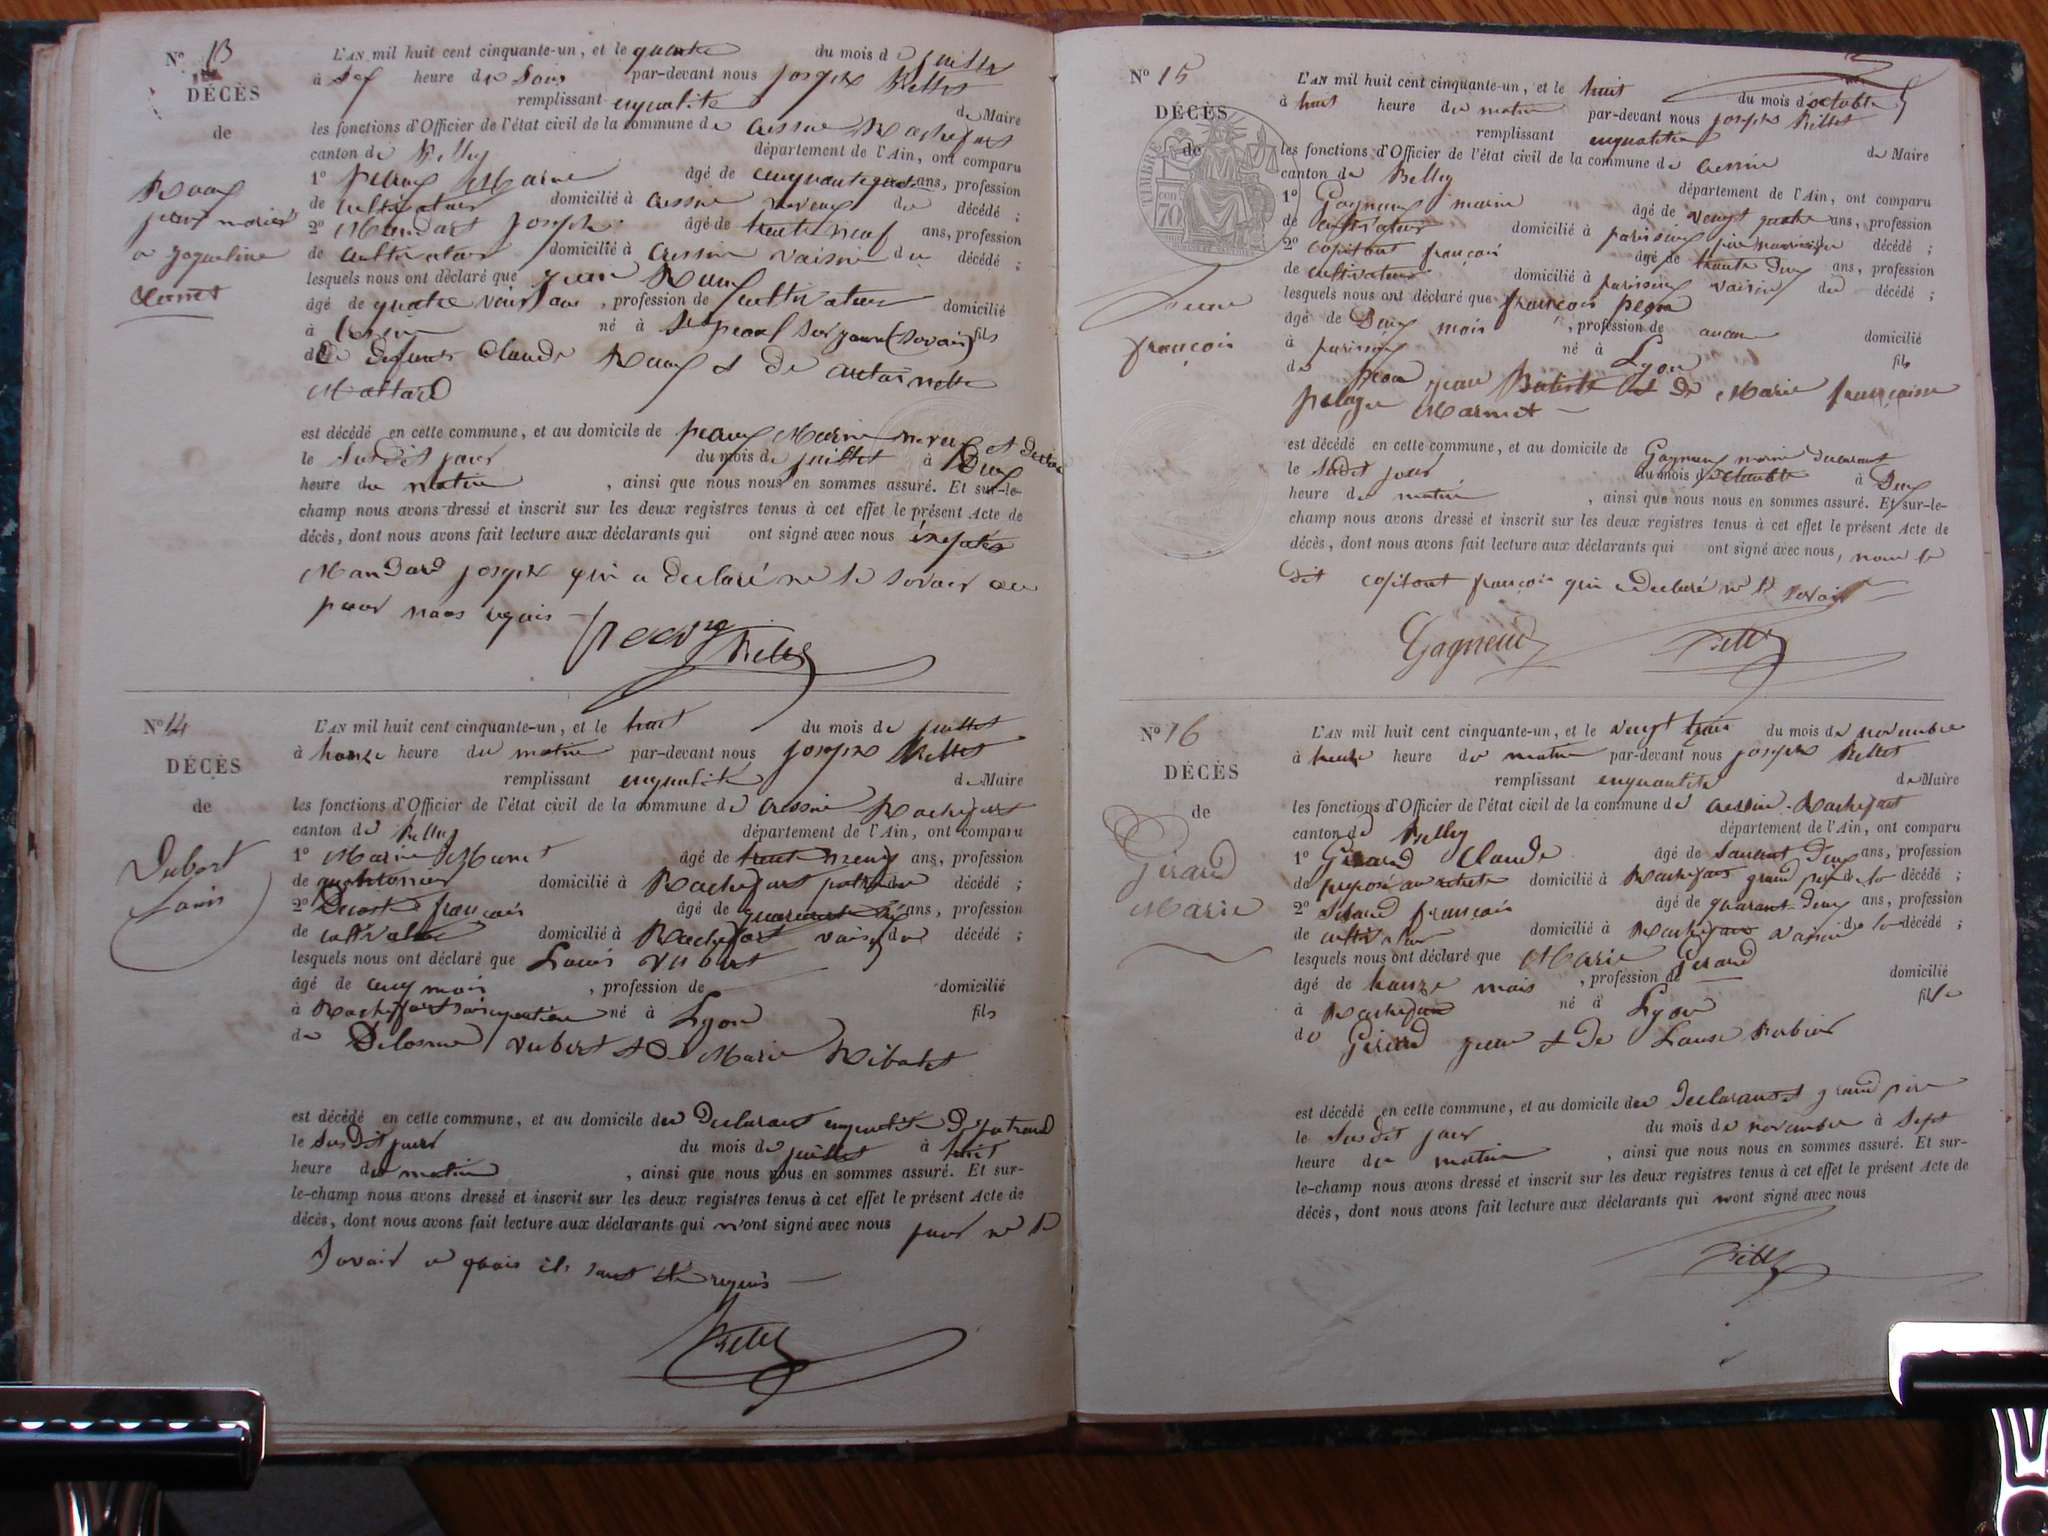 Nº 13
DÉCÈS
de
Jean marié
a Jaqueline
L'AN mil huit cent cinquante-un, et le quatre du mois de juillet
à sep heure du soir par-devant nous joseph Rillet
remplissant enqualité de Maire
les fonctions d'Officier de l'état civil de la commune de cressin Rochefort
canton de Belley département de l'Ain, ont comparu
1º âgé de ans, profession
de cultivateur domicilié à cressin neveux du décédé ;
2º Mandart joseph âgé de trente neuf ans, profession
de cultivateur domicilié à cressin voisin du décédé ;
lesquels nous ont déclaré que jean
âgé de quatre vaint ans, profession de cultivateur domicilié
à né à fils
de defunt Claude & de antoinette
Mollard
est décédé en cette commune, et au domicile de neveux et declarant
le susdit jour du mois de juillet à Deux
heure du matin, ainsi que nous nous en sommes assuré. Et sur-le-
champ nous avons dressé et inscrit sur les deux registres tenus à cet effet le présent Acte de
décès, dont nous avons fait lecture aux déclarants qui ont signé avec nous
Mandard joseph qui a declaré ne le savoir
pour nous requis
Rillet
Nº 14
DÉCÈS
de
Vubert
Louis
L'AN mil huit cent cinquante-un, et le huit du mois de juillet
à honze heure du matin par-devant nous joseph Rillet
remplissant enqualité de Maire
les fonctions d'Officier de l'état civil de la commune de cressin Rochefort
canton de Belley département de l'Ain, ont comparu
1º Marin âgé de ans, profession
de domicilié à Rochefort décédé ;
2º françois âgé de ans, profession
de cultivateur domicilié à Rochefort voisin du décédé ;
lesquels nous ont déclaré que Louis Vubert
âgé de cinq mois, profession de domicilié
à Rochefort né à Lyon fils
de Vubert & de Marie Ribollet
est décédé en cette commune, et au domicile du Declarant enqualité De
le susdit jour du mois de juillet à
heure du matin, ainsi que nous nous en sommes assuré. Et sur-
le-champ nous avons dressé et inscrit sur les deux registres tenus à cet effet le présent Acte de
décès, dont nous avons fait lecture aux déclarants qui n'ont signé avec nous pour ne le
savoir a quois ils sont été requis
Rillet
Nº 15
DÉCÈS
de
TIMBRE
70
françois
L'AN mil huit cent cinquante-un, et le huit du mois d'octobre
à huit heure du matin par-devant nous joseph Rillet
remplissant enqualité de Maire
les fonctions d'Officier de l'état civil de la commune de cressin
canton de Belley département de l'Ain, ont comparu
1º Gagneux marin âgé de vengt quatre ans, profession
de cultivateur domicilié à parissieu père nourricier décédé ;
2º françois âgé de trente Deux ans, profession
de cultivateur domicilié à parissieu voisin du décédé ;
lesquels nous ont déclaré que françois
âgé de Deux mois, profession de aucune domicilié
à parissieu né à Lyon fils
de jean Batiste et de Marie françoise
pelagie Marmet
est décédé en cette commune, et au domicile de Gagneux marin declarant
le sudit jour du mois d'octobre à Deux
heure du matin, ainsi que nous nous en sommes assuré. Et sur-le-
champ nous avons dressé et inscrit sur les deux registres tenus à cet effet le présent Acte de
décès, dont nous avons fait lecture aux déclarants qui ont signé avec nous, non le
dit françois qui a declaré ne le savoir
Gagneux Rillet
Nº 16
DÉCÈS
de
Girard
Marie
L'AN mil huit cent cinquante-un, et le vengt trois du mois de novembre
à heure du matin par-devant nous joseph Rillet
remplissant enqualité de Maire
les fonctions d'Officier de l'état civil de la commune de cressin-Rochefort
canton de Belley département de l'Ain, ont comparu
1º Girard Claude âgé de soixant Deux ans, profession
de preposé au retrete domicilié à Rochefort grand père de la décédé ;
2º françois âgé de quarant-Deux ans, profession
de cultivateur domicilié à Rochefort voisin de la décédé ;
lesquels nous ont déclaré que Marie Girard
âgé de honze mois, profession de domicilié
à Rochefort né à Lyon fille
de Girard jean & de Louise
est décédé en cette commune, et au domicile du Declarant grand père
le susdit jour du mois de novembre à sept
heure du matin, ainsi que nous nous en sommes assuré. Et sur-
le-champ nous avons dressé et inscrit sur les deux registres tenus à cet effet le présent Acte de
décès, dont nous avons fait lecture aux déclarants qui n'ont signé avec nous
Rillet